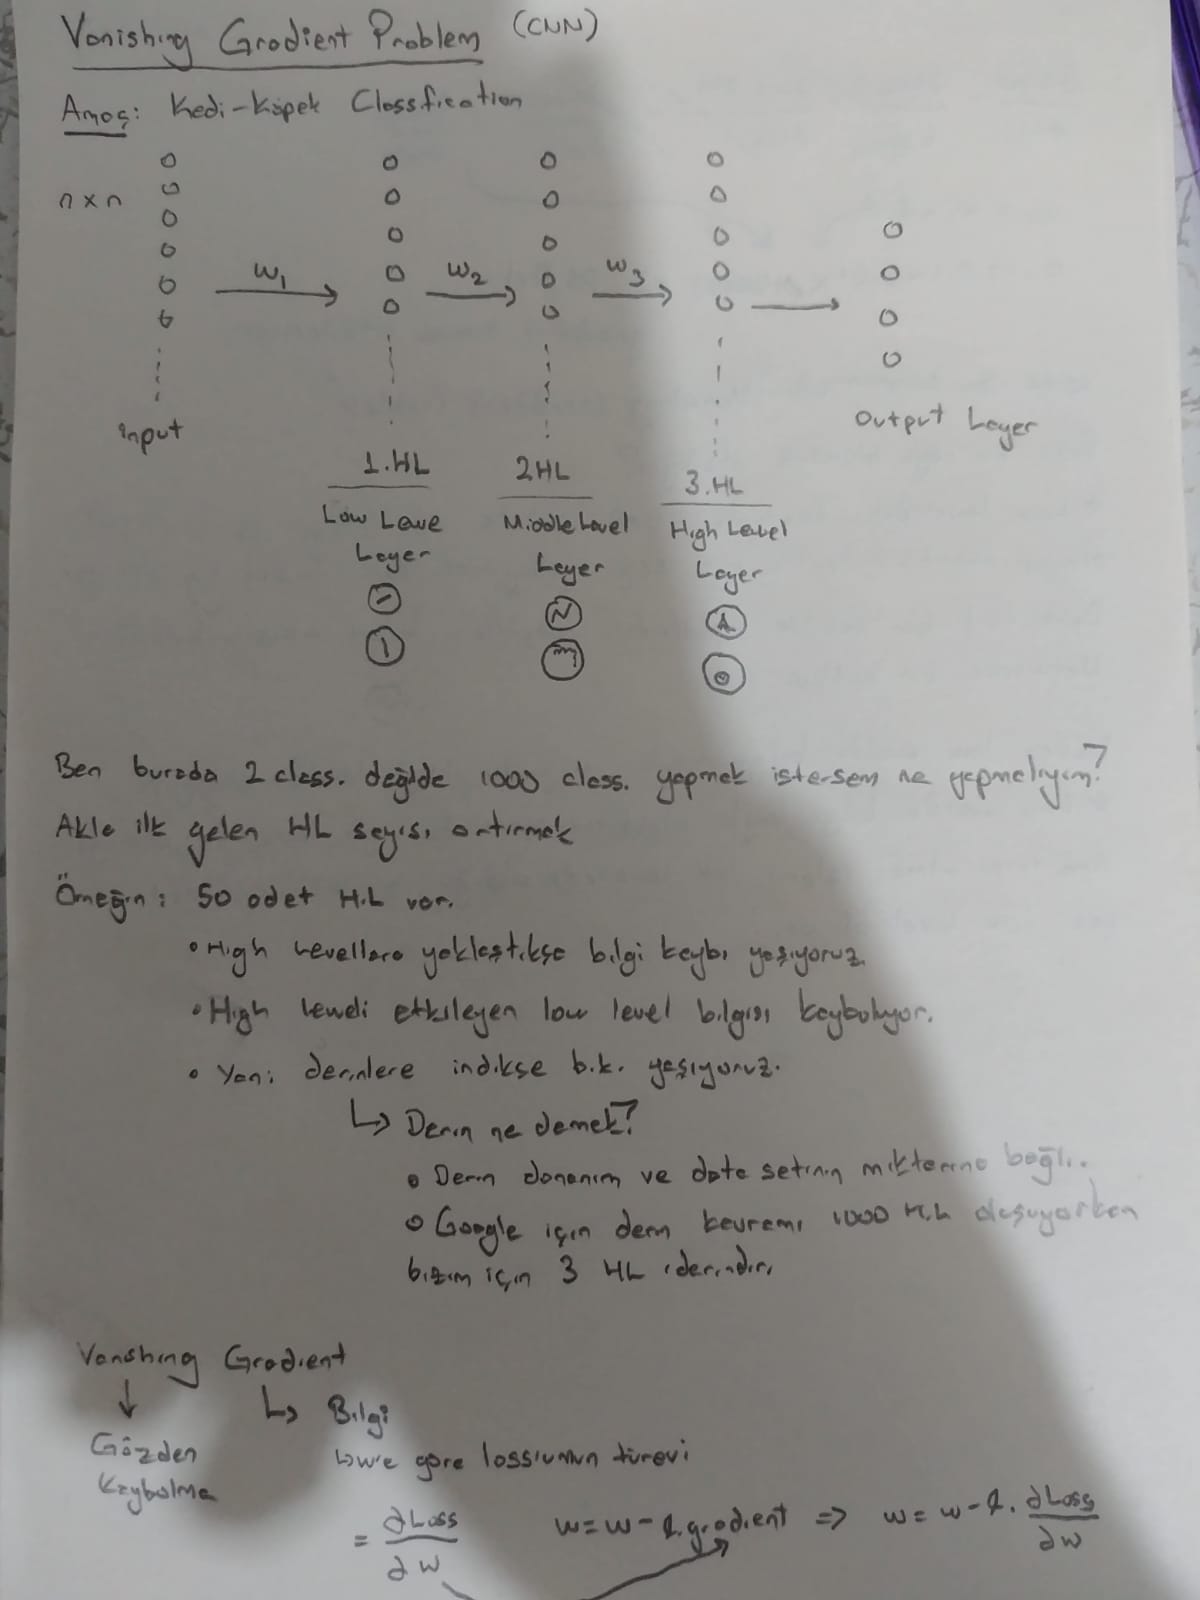 Vanishing Gradient Problem (CNN)
Amaç: Kedi-Köpek Classfication
n x n
w1 w2 w3
input
Output Layer
1.HL 2HL 3.HL
Low Leve Layer
Middle Level Layer
High Level Layer
Ben burada 2 class. değilde 1000 class. yapmak istersem ne yapmalıyım?
Akla ilk gelen HL sayısı artırmak
Örneğin: 50 adet H.L var.
• High Levellara yaklaştıkça bilgi kaybı yaşıyoruz.
• High leveli etkileyen low level bilgisi kayboluyor.
• Yani derinlere indikçe b.k. yaşıyoruz.
↳ Derin ne demek?
• Derin donanım ve data setinin miktarına bağlı.
• Google için derin kavramı 1000 H.L oluşuyorken
bizim için 3 HL derindir.
Vanishing Gradient
↓ ↳ Bilgi
Gözden Kaybolma
w'e göre loss'umun türevi
= ∂Loss/∂w w = w - l.gradient => w = w - l. ∂Loss/∂w